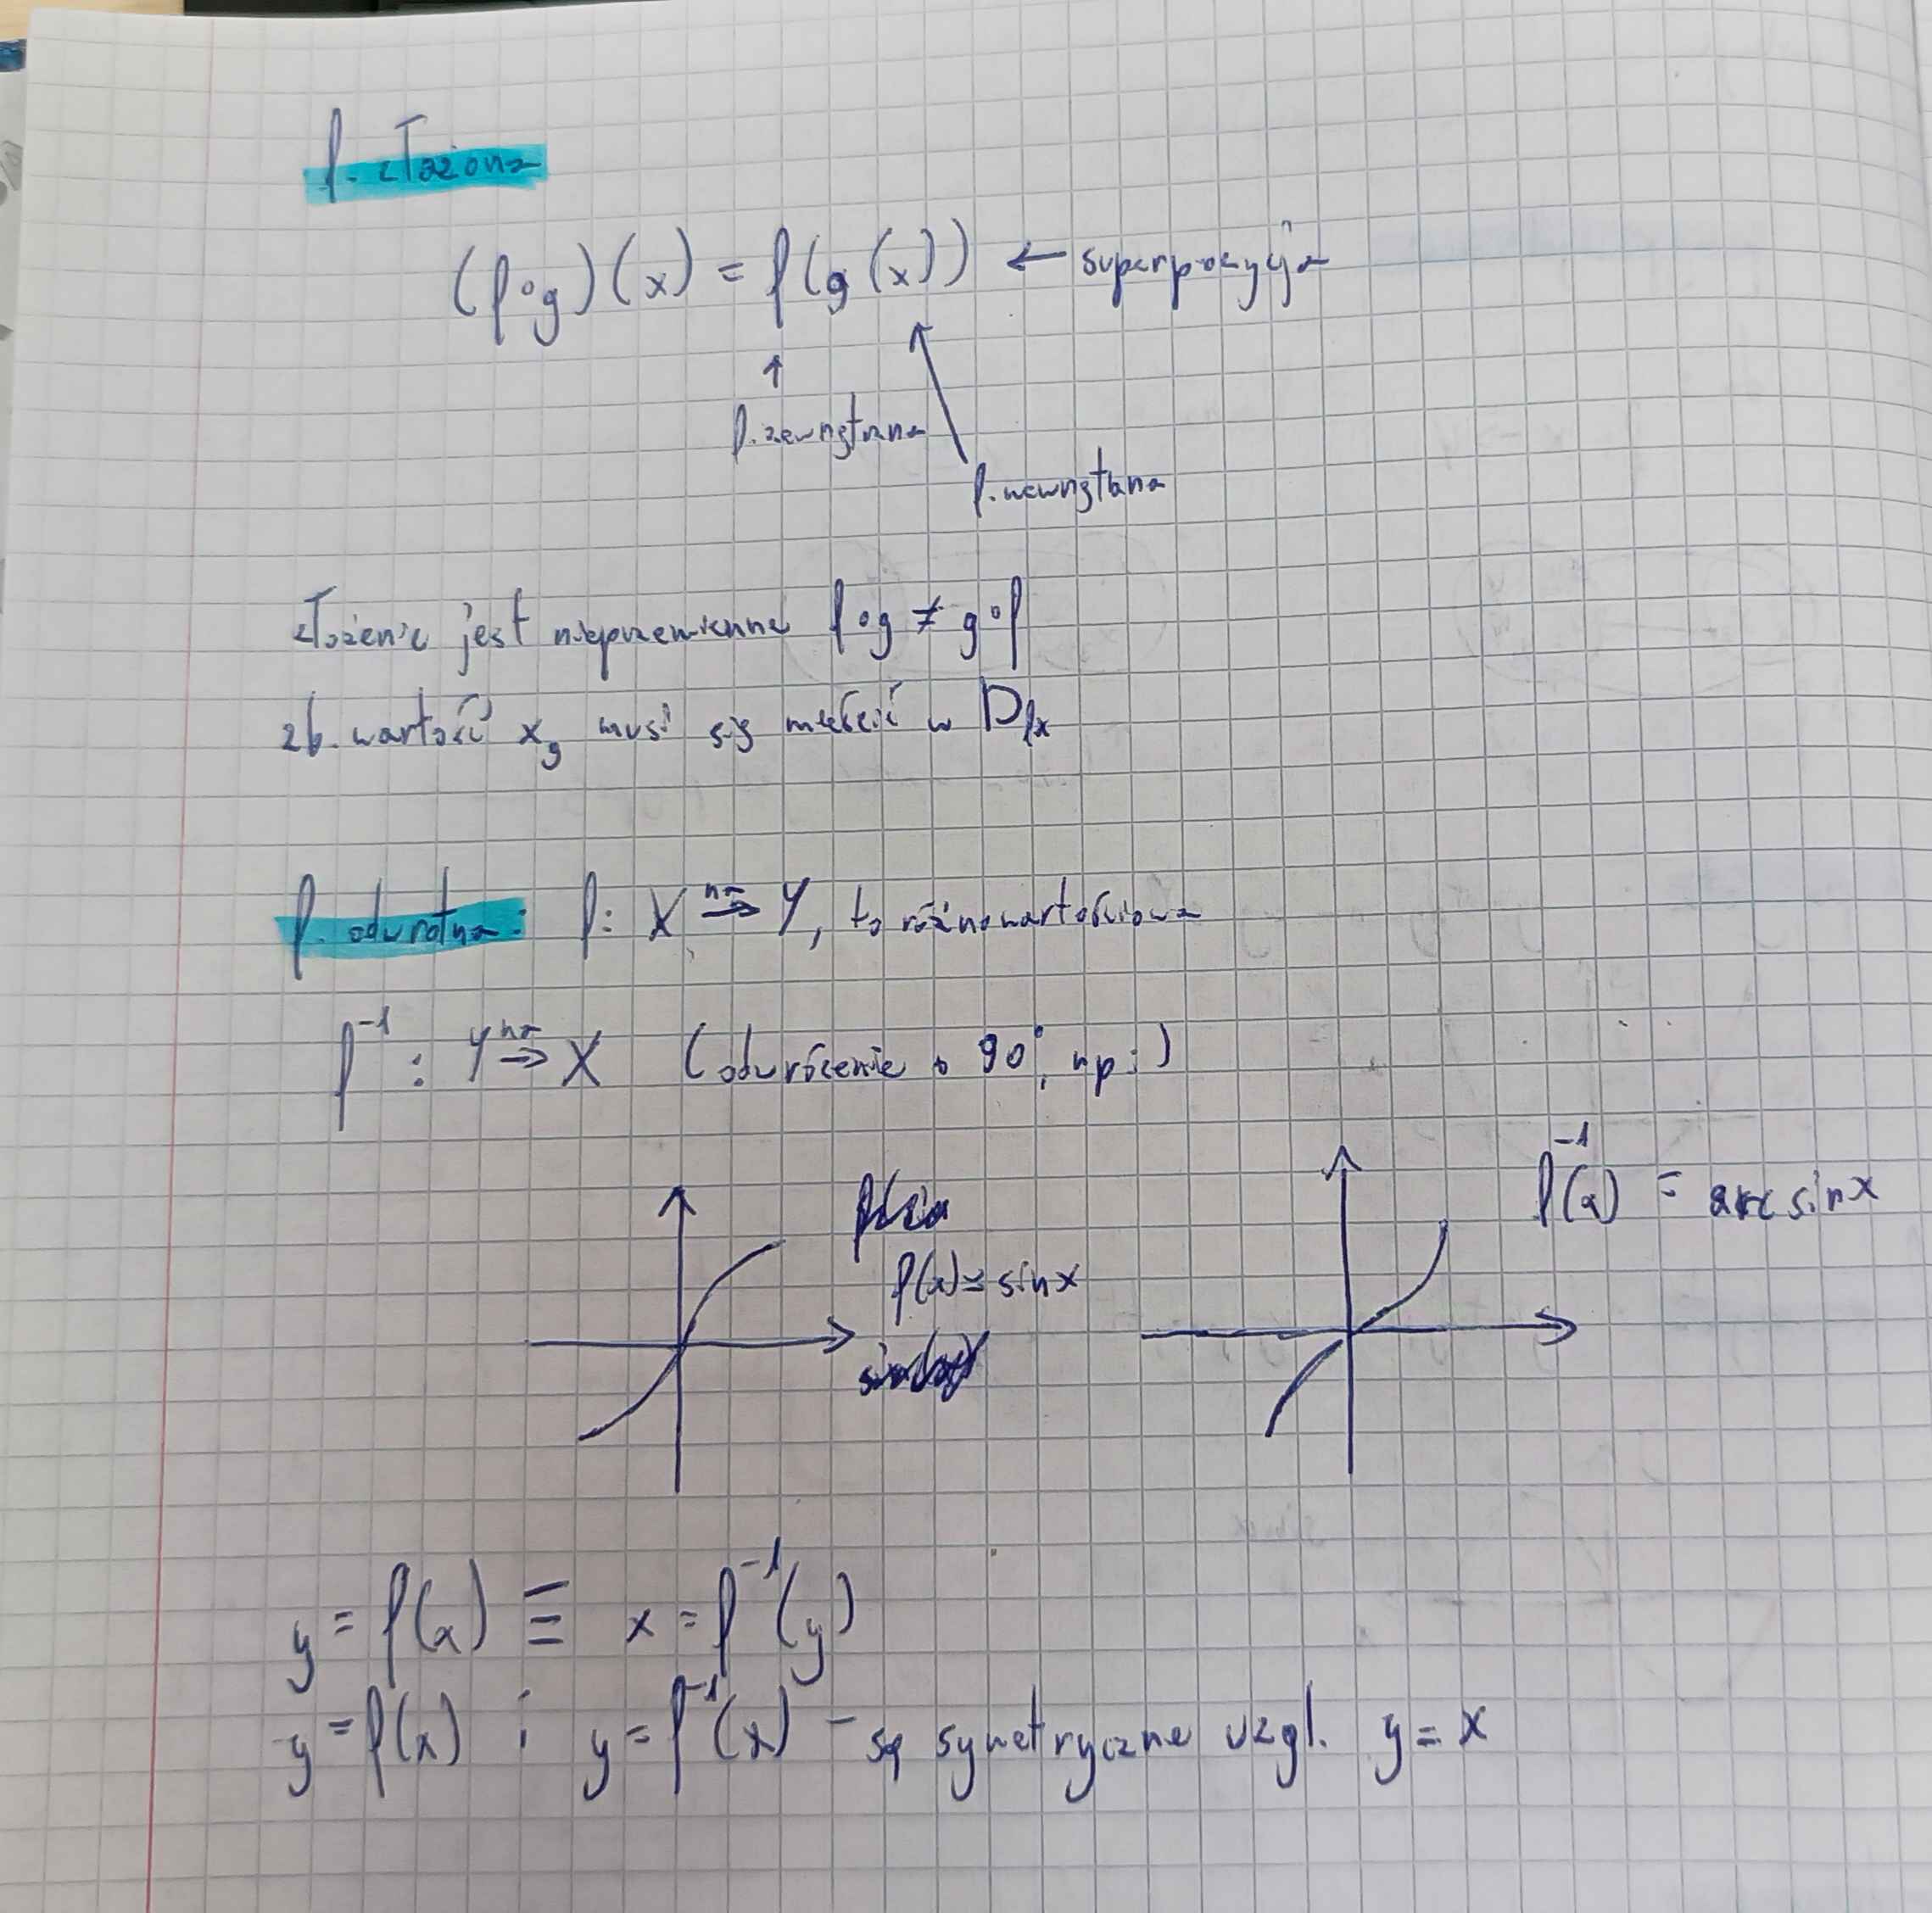 f. złożona
(f∘g)(x) = f(g(x)) ← superpozycja
↑
f. zewnętrzna
f. wewnętrzna
złożenie jest nieprzemienne f∘g ≠ g∘f
zb. wartość x_g musi się mieścić w D_fx
f. odwrotna: f: X →^na Y, to różnowartościowa
f⁻¹: Y →^na X (odwrócenie o 90°, np:)
f(x) = sinx
f⁻¹(x) = arc sinx
y = f(x) ≡ x = f⁻¹(y)
y = f(x) i y = f⁻¹(x) – są symetryczne wzgl. y = x